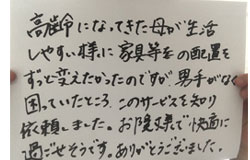 高齢になってきた母が生活
しやすい様に家具等の配置を
ずっと変えたかったのですが男手がなく
困っていたところ、このサービスを知り
依頼しました。お陰様で快適に
過ごせそうです。ありがとうございました。